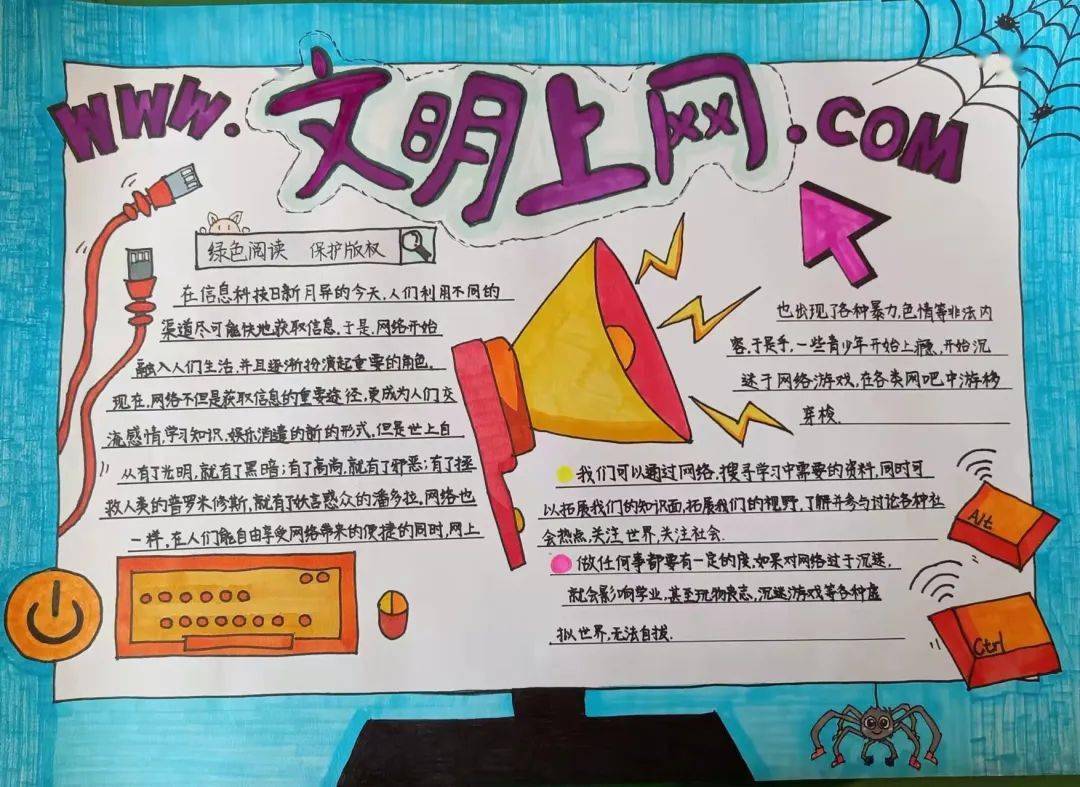 www.文明上网.COM
绿色阅读 保护版权
在信息科技日新月异的今天,人们利用不同的
渠道尽可能快地获取信息,于是,网络开始
融入人们生活,并且逐渐扮演起重要的角色,
现在,网络不但是获取信息的重要途径,更成为人们交
流感情,学习知识,娱乐消遣的新的形式,但是世上自
从有了光明,就有了黑暗;有了高尚,就有了邪恶;有了拯
救人类的普罗米修斯,就有了妖言惑众的潘多拉,网络也
一样,在人们能自由享受网络带来的便捷的同时,网上
也出现了各种暴力,色情等非法内
容,于是乎,一些青少年开始上瘾,开始沉
迷于网络游戏,在各类网吧中游移
穿梭.
我们可以通过网络,搜寻学习中需要的资料,同时可
以拓展我们的知识面,拓展我们的视野,了解并参与讨论各种社
会热点,关注世界,关注社会.
做任何事都要有一定的度,如果对网络过于沉迷,
就会影响学业,甚至玩物丧志,沉迷游戏等各种虚
拟世界,无法自拔.
Alt
Ctrl